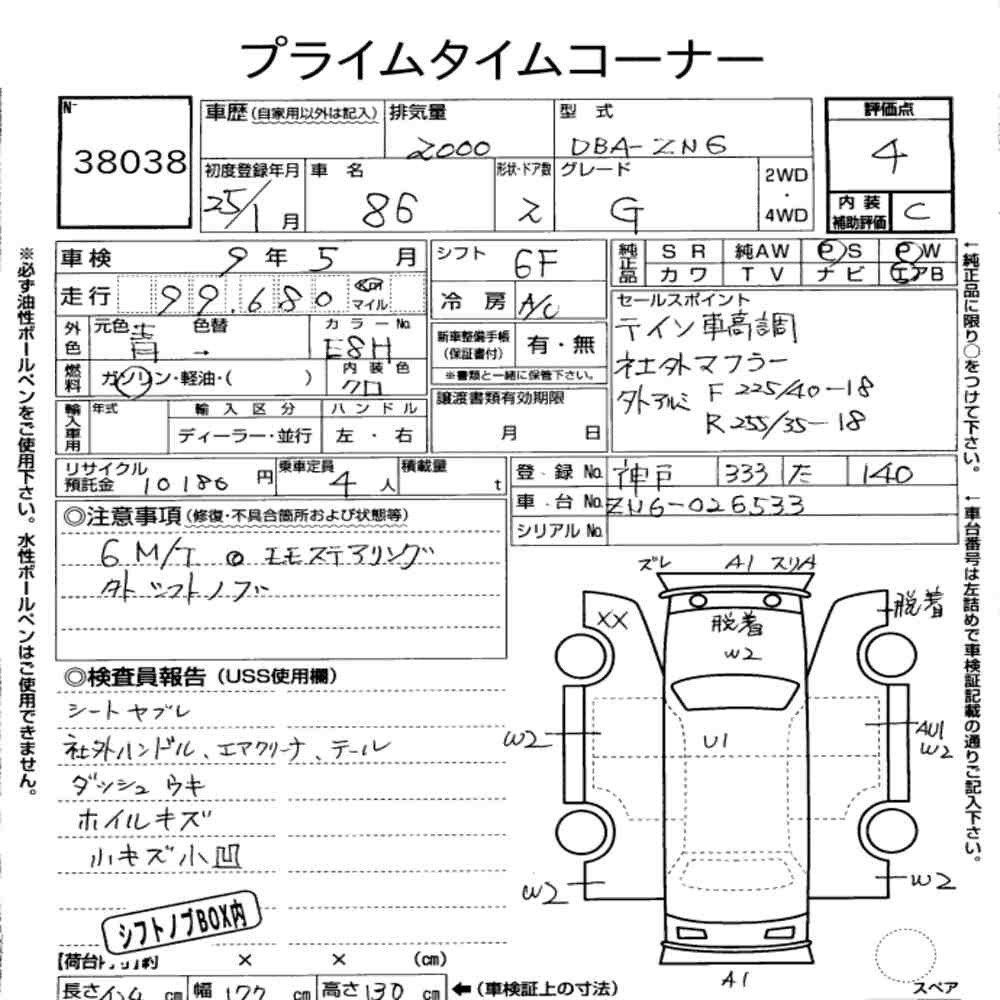 プライムタイムコーナー
N- 38038
車歴(自家用以外は記入) 排気量 2000 型式 DBA-ZN6
評価点 4
初度登録年月 25/1月 車名 86 形状・ドア数 2 グレード G 2WD・4WD
内装補助評価 C
車検 9年5月 シフト 6F
走行 99,680 km マイル 冷房 A/C
純正品 SR 純AW PS PW
カワ TV ナビ エアB
外色 元色 青 色替 → カラーNo. E8H
新車整備手帳(保証書付) 有・無
※書類と一緒に保管下さい。
燃料 ガソリン・軽油・( ) 内装色 クロ
セールスポイント
テイン車高調
社外マフラー
外アルミ F 225/40-18
R 255/35-18
輸入車用 年式 輸入区分 ハンドル
ディーラー・並行 左・右
譲渡書類有効期限 月 日
リサイクル預託金 10186円 乗車定員 4人 積載量 t
登録No. 神戸 333 た 140
車台No. ZN6-026533
シリアルNo.
◎注意事項(修復・不具合箇所および状態等)
6M/T ◎モモステアリング
外シフトノブ
◎検査員報告(USS使用欄)
シートヤブレ
社外ハンドル、エアクリーナ、テール
ダッシュウキ
ホイルキズ
小キズ小凹
シフトノブBOX内
× × (cm)
長さ cm 幅 177 cm 高さ 130 cm ←(車検証上の寸法)
ズレ A1 スリA
XX 脱着 W2 脱着
W2 U1 AU1 W2
W2 W2
A1
スペア
※必ず油性ボールペンをご使用下さい。水性ボールペンはご使用できません。
←純正品に限り○をつけて下さい。
←車台番号は左詰めで車検証記載の通りご記入下さい。